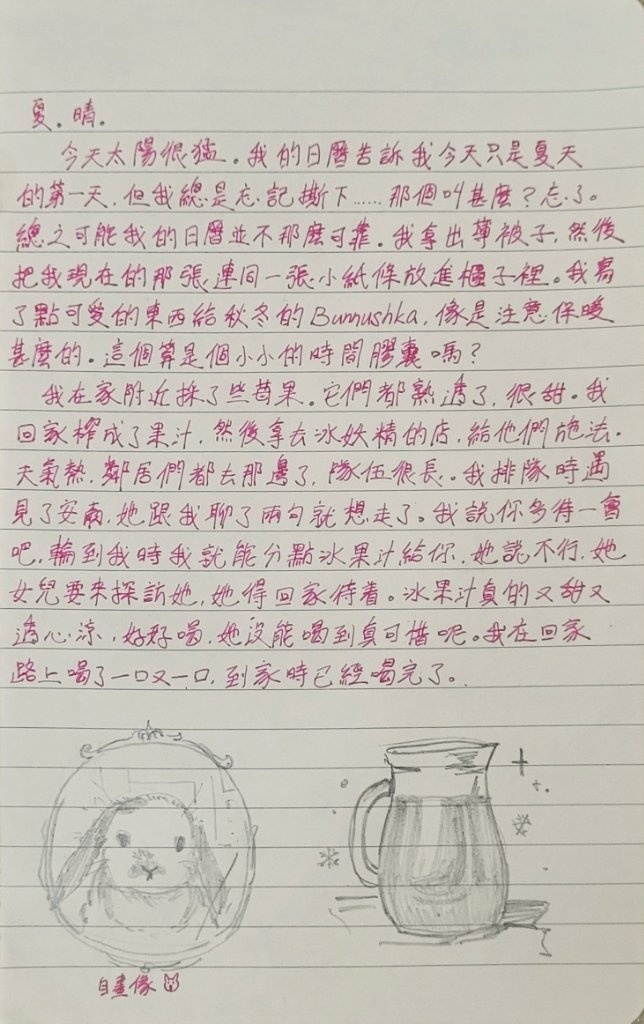 夏。晴。
今天太陽很猛。我的日曆告訴我今天只是夏天
的第一天,但我總是忘記撕下……那個叫甚麼?忘了。
總之可能我的日曆並不那麼可靠。我拿出薄被子,然後
把我現在的那張,連同一張小紙條放進櫃子裡。我寫
了點可愛的東西給秋冬的Bunnushka,像是注意保暖
甚麼的。這個算是個小小的時間膠囊嗎?
我在家附近採了些莓果。它們都熟透了,很甜。我
回家榨成了果汁,然後拿去冰妖精的店,給他們施法。
天氣熱,鄰居們都去那邊了,隊伍很長。我排隊時遇
見了安南,她跟我聊了兩句就想走了。我說你多待一會
吧,輪到我時我就能分點冰果汁給你,她說不行,她
女兒要來探訪她,她得回家待着。冰果汁真的又甜又
透心涼,好好喝,她沒能喝到真可惜呢。我在回家
路上喝了一口又一口,到家時已經喝完了。
自畫像